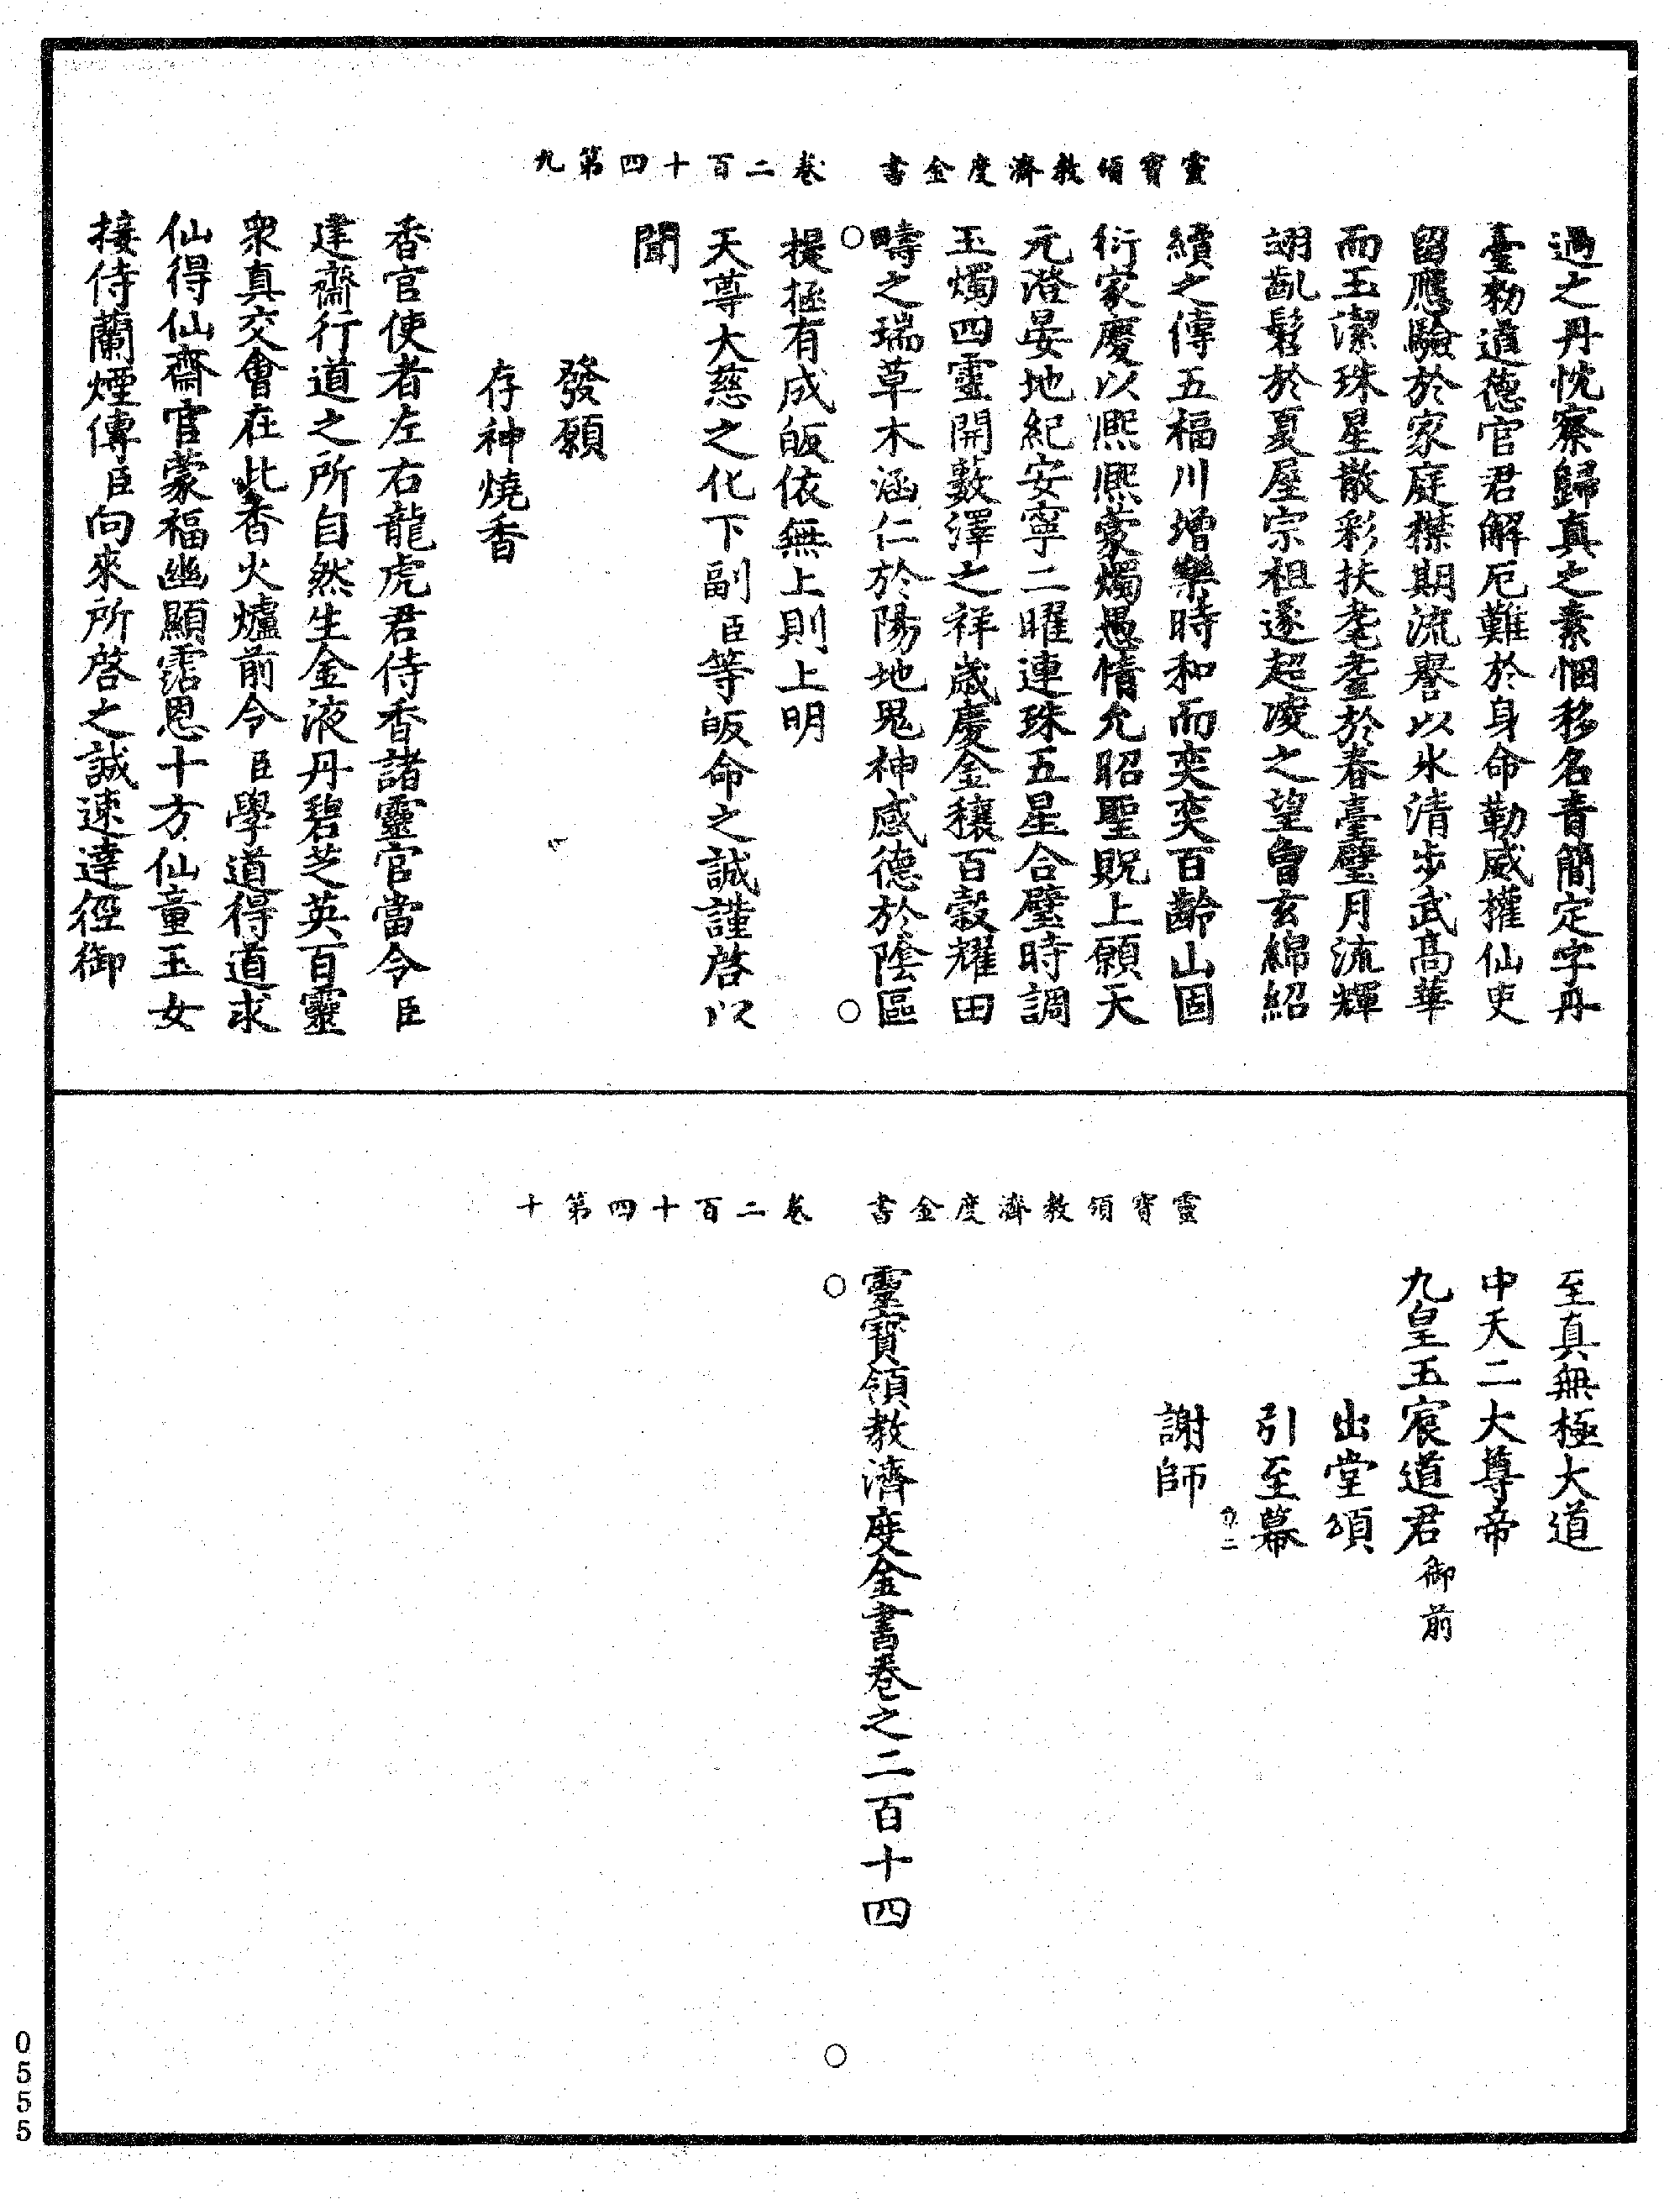 靈寶領教濟度金書　卷二百十四第九
過之丹忱察歸真之素悃移名青簡定字丹
臺勑道德官君解厄難於身命勒威權仙吏
留應驗於家庭襟期流譽以氷清步武高華
而玉潔珠星散彩扶耄耋於春臺璧月流輝
詡齓髫於夏屋宗祖遂超凌之望曾玄綿紹
續之傳五福川增樂時和而奕奕百齡山固
衍家慶以熈熈蒙燭愚情允昭聖貺上願天
元澄晏地紀安寧二曜連珠五星合璧時調
玉燭四靈開數澤之祥歲慶金穰百穀耀田
疇之瑞草木涵仁於陽地鬼神感德於陰區
提拯有成皈依無上則上明
天尊大慈之化下副臣等皈命之誠謹啓以
聞
發願
存神燒香
香官使者左右龍虎君侍香諸靈官當令臣
建齋行道之所自然生金液丹碧芝英百靈
衆真交會在此香火爐前令臣學道得道求
仙得仙齋官蒙福幽顯霑恩十方仙童玉女
接侍蘭煙傳臣向來所啓之誠速達徑御
靈寶領教濟度金書　卷二百十四第十
至真無極大道
中天二大尊帝
九皇五宸道君御前
出堂頌
引至幕
謝師
靈寶領教濟度金書卷之二百十四
0555